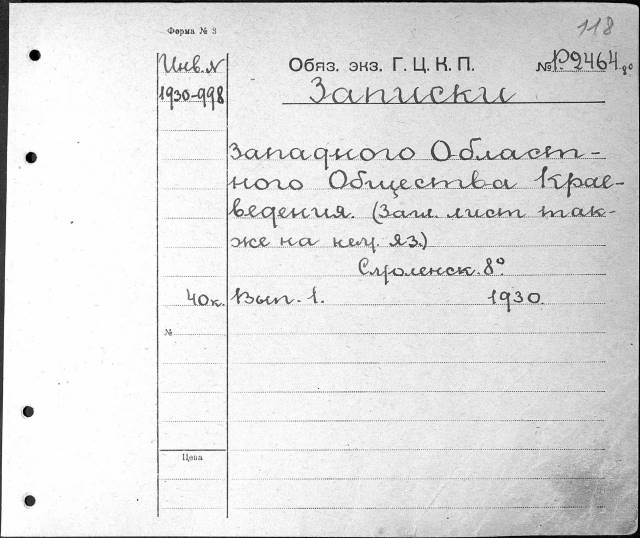 118
Форма № 3
Инв. №
1930-998
Обяз. экз. Г. Ц. К. П.
№ Р.2464 8°
Записки
Западного Област-
ного Общества Крае-
ведения. (Загл. лист так-
же на нем. яз.)
Смоленск. 8°.
40к. Вып. 1. 1930.
№
Цена